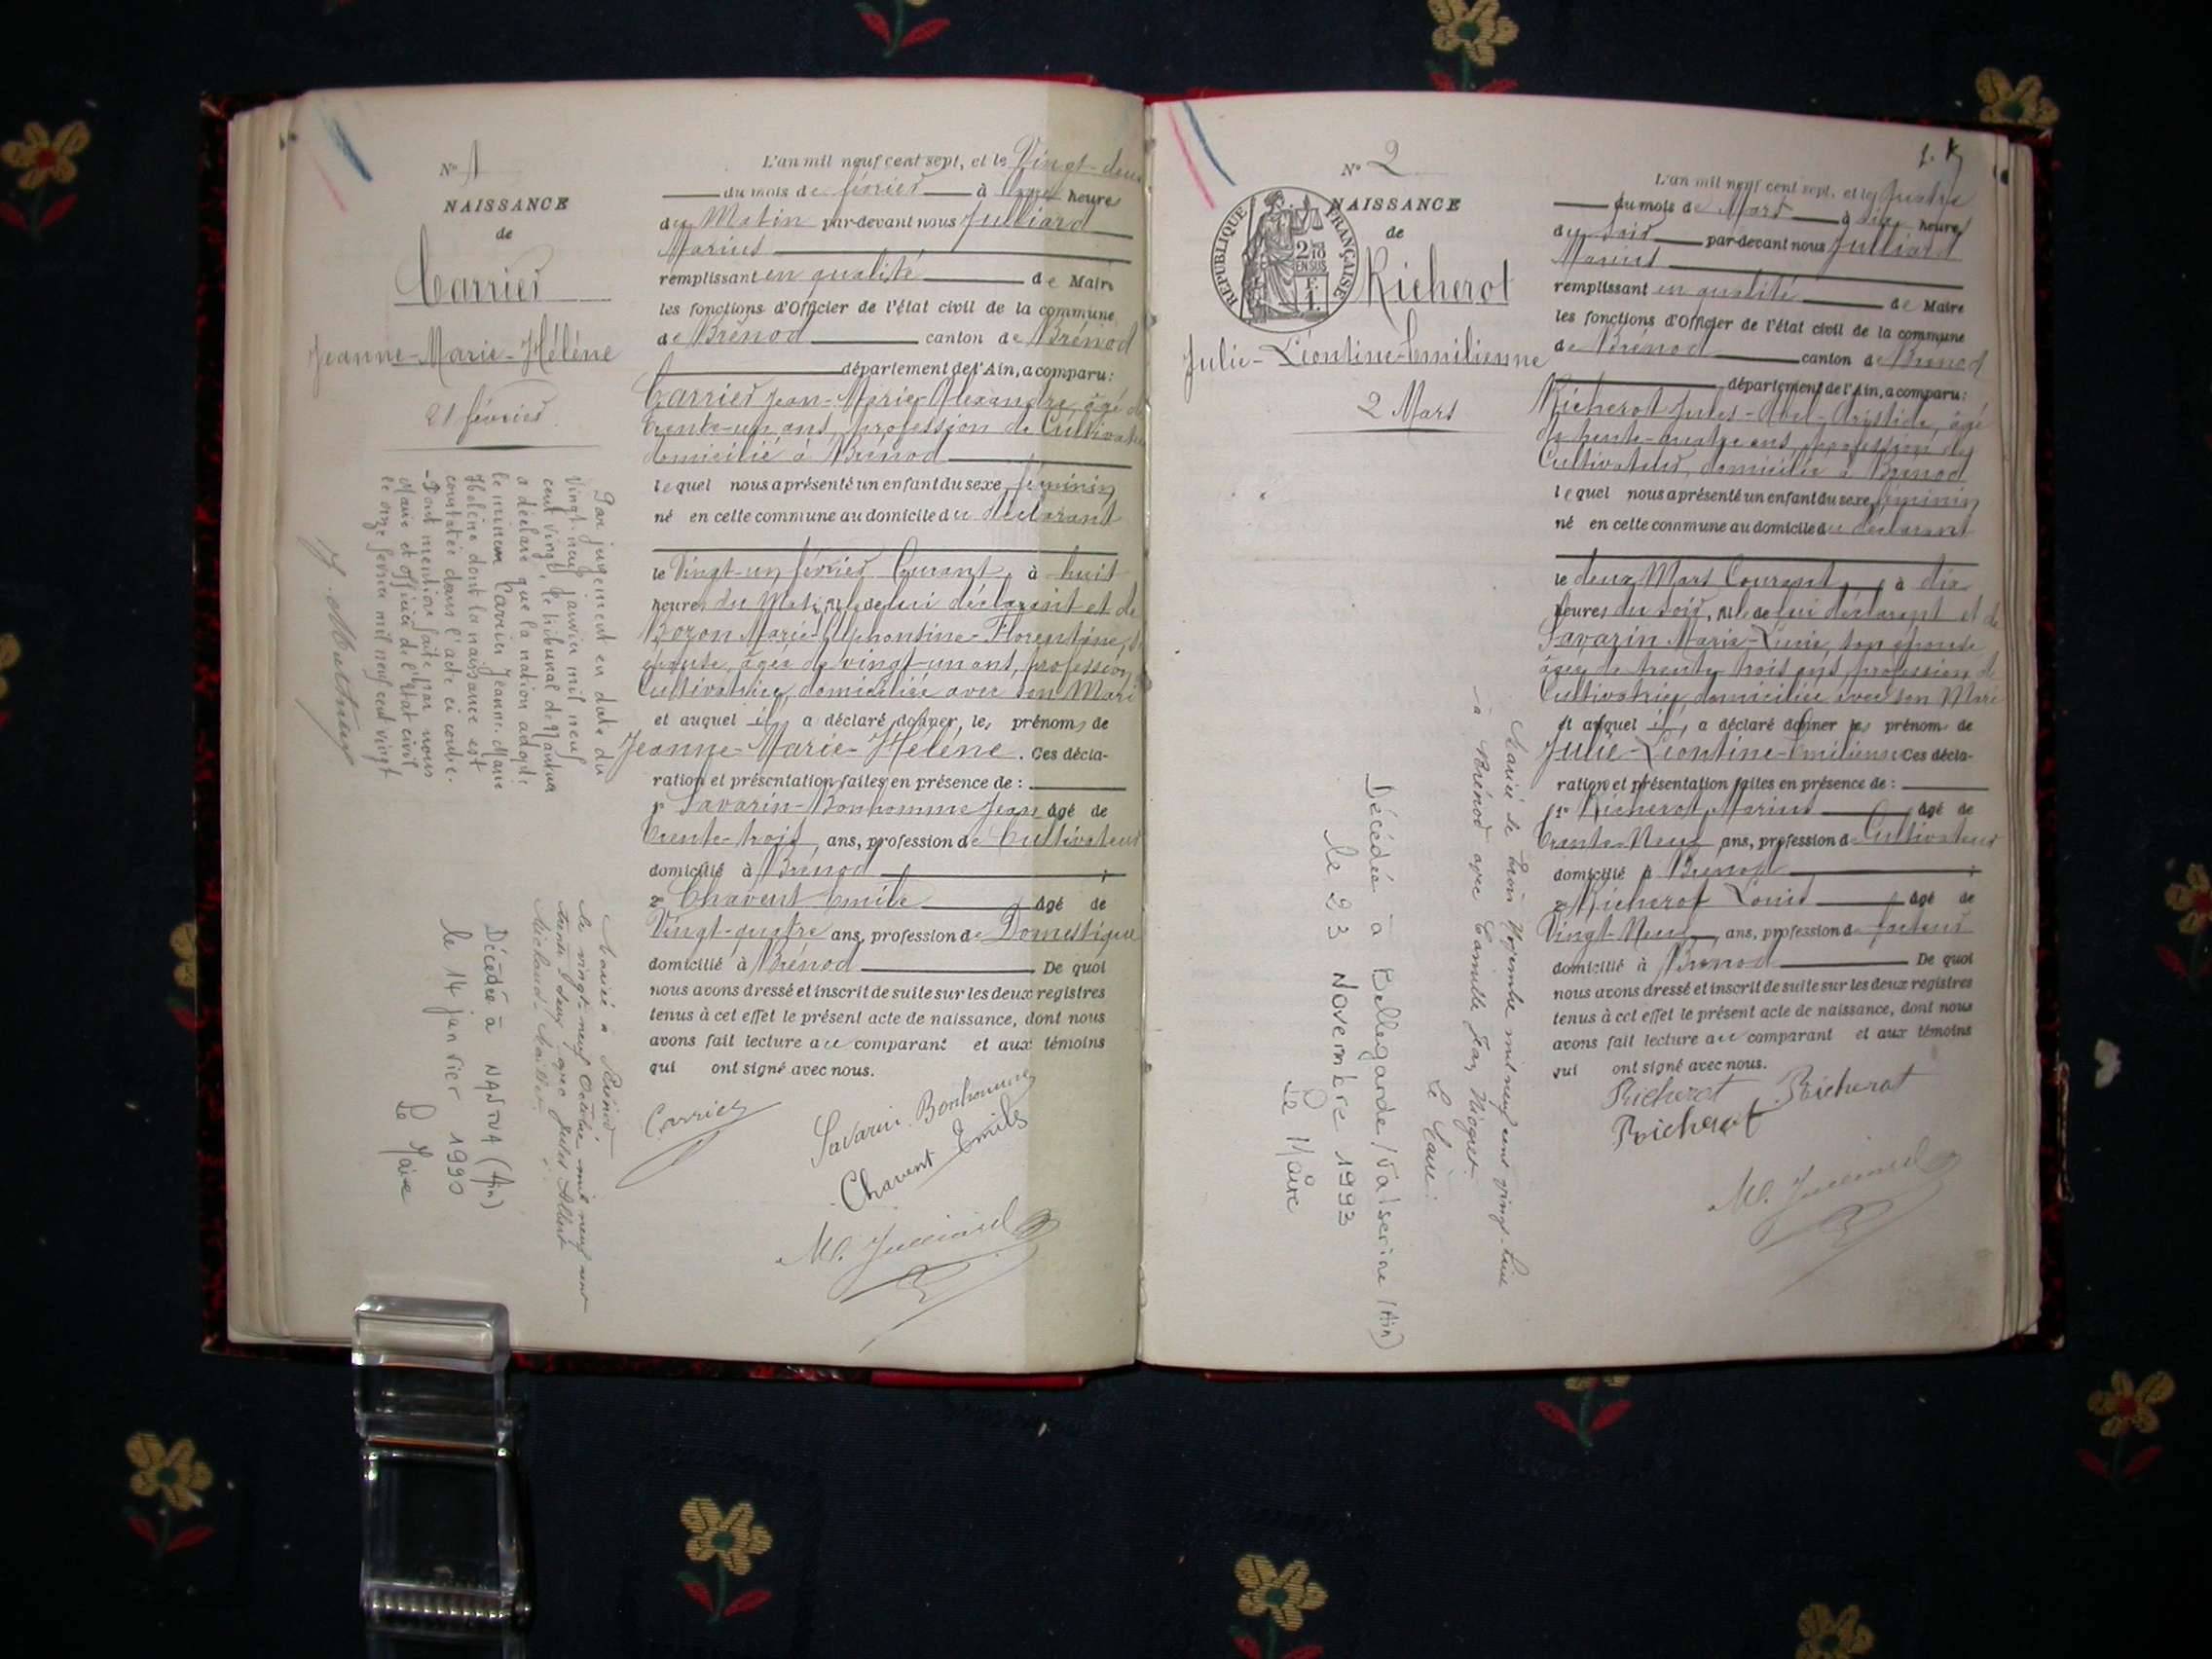 N° 1
NAISSANCE
de
Carrier
Jeanne-Marie-Hélène
21 février
Par jugement en date du
vingt neuf janvier mil neuf
cent vingt, le tribunal de Nantua
a déclaré que la nation adopte
la mineure Carrier Jeanne-Marie
Hélène dont la naissance est
constatée dans l'acte ci contre.
- Dont mention faite par nous
Maire et officier de l'état civil
le onze février mil neuf cent vingt
Mariée à Brénod
le vingt-neuf Octobre mil neuf cent
trente deux avec Jules Albert
Décédée à NANTUA (Ain)
le 14 janvier 1990
Le Maire
L'an mil neuf cent sept, et le Vingt-deux
du mois de février à heures
du Matin par-devant nous Julliard
Marius
remplissant en qualité de Maire
les fonctions d'Officier de l'état civil de la commune
de Brénod canton de Brénod
département de l'Ain, a comparu:
Carrier Jean-Marie Alexandre, âgé de
trente-un ans, profession de Cultivateur
domicilié à Brénod
lequel nous a présenté un enfant du sexe féminin
né en cette commune au domicile du déclarant
le Vingt-un février Courant, à huit
heures du Matin, de lui déclarant et de
Bozon Marie-Alphonsine-Florentine, son
épouse, âgée de vingt-un ans, profession
Cultivatrice, domiciliée avec son Mari
et auquel il a déclaré donner les prénoms de
Jeanne-Marie-Hélène. Ces décla-
ration et présentation faites en présence de:
1° Savarin-Bonhomme Jean âgé de
trente-trois ans, profession de Cultivateur
domicilié à Brénod
2° Chavent Emile âgé de
Vingt-quatre ans, profession de Domestique
domicilié à Brénod De quoi
nous avons dressé et inscrit de suite sur les deux registres
tenus à cet effet le présent acte de naissance, dont nous
avons fait lecture au comparant et aux témoins
qui ont signé avec nous.
Carrier Savarin Bonhomme
Chavent Emile
M. Julliard
N° 2
NAISSANCE
de
RÉPUBLIQUE FRANÇAISE
2/10 EN SUS
Richerot
Julie-Léontine-Emilienne
2 Mars
Mariée le trois Novembre mil neuf cent vingt-
à Brénod avec Camille Jean Niogret.
Le Maire:
Décédée à Bellegarde/Valserine (Ain)
le 23 Novembre 1993
Le Maire
L'an mil neuf cent sept, et le Quatre
du mois de Mars à heures
du Soir par-devant nous Julliard
Marius
remplissant en qualité de Maire
les fonctions d'Officier de l'état civil de la commune
de Brénod canton de Brénod
département de l'Ain, a comparu:
Richerot Jules-Abel-Aristide, âgé
de trente-quatre ans, profession de
Cultivateur, domicilié à Brénod
lequel nous a présenté un enfant du sexe féminin
né en cette commune au domicile du déclarant
le deux Mars Courant, à dix
heures du Soir, de lui déclarant et de
Savarin Marie-Louise, son épouse
âgée de trente trois ans, profession de
Cultivatrice, domiciliée avec son Mari
et auquel il a déclaré donner les prénoms de
Julie-Léontine-Emilienne Ces décla-
ration et présentation faites en présence de:
1° Richerot Marius âgé de
trente-Neuf ans, profession de Cultivateur
domicilié à Brénod
2° Richerot Louis âgé de
Vingt-Neuf ans, profession de facteur
domicilié à Brénod De quoi
nous avons dressé et inscrit de suite sur les deux registres
tenus à cet effet le présent acte de naissance, dont nous
avons fait lecture au comparant et aux témoins
qui ont signé avec nous.
Richerot Richerot
Richerot
M. Julliard